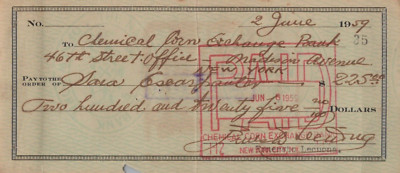 No. 2 June 1959
35
TO Chemical Corn Exchange Bank
46th Street Office - Madison Avenue
NEW YORK
PAY TO THE ORDER OF Sara $ 225 00
Two hundred and twenty five no/00 DOLLARS
JUN 1959
CHEMICAL CORN EXCHANGE
NEW YORK